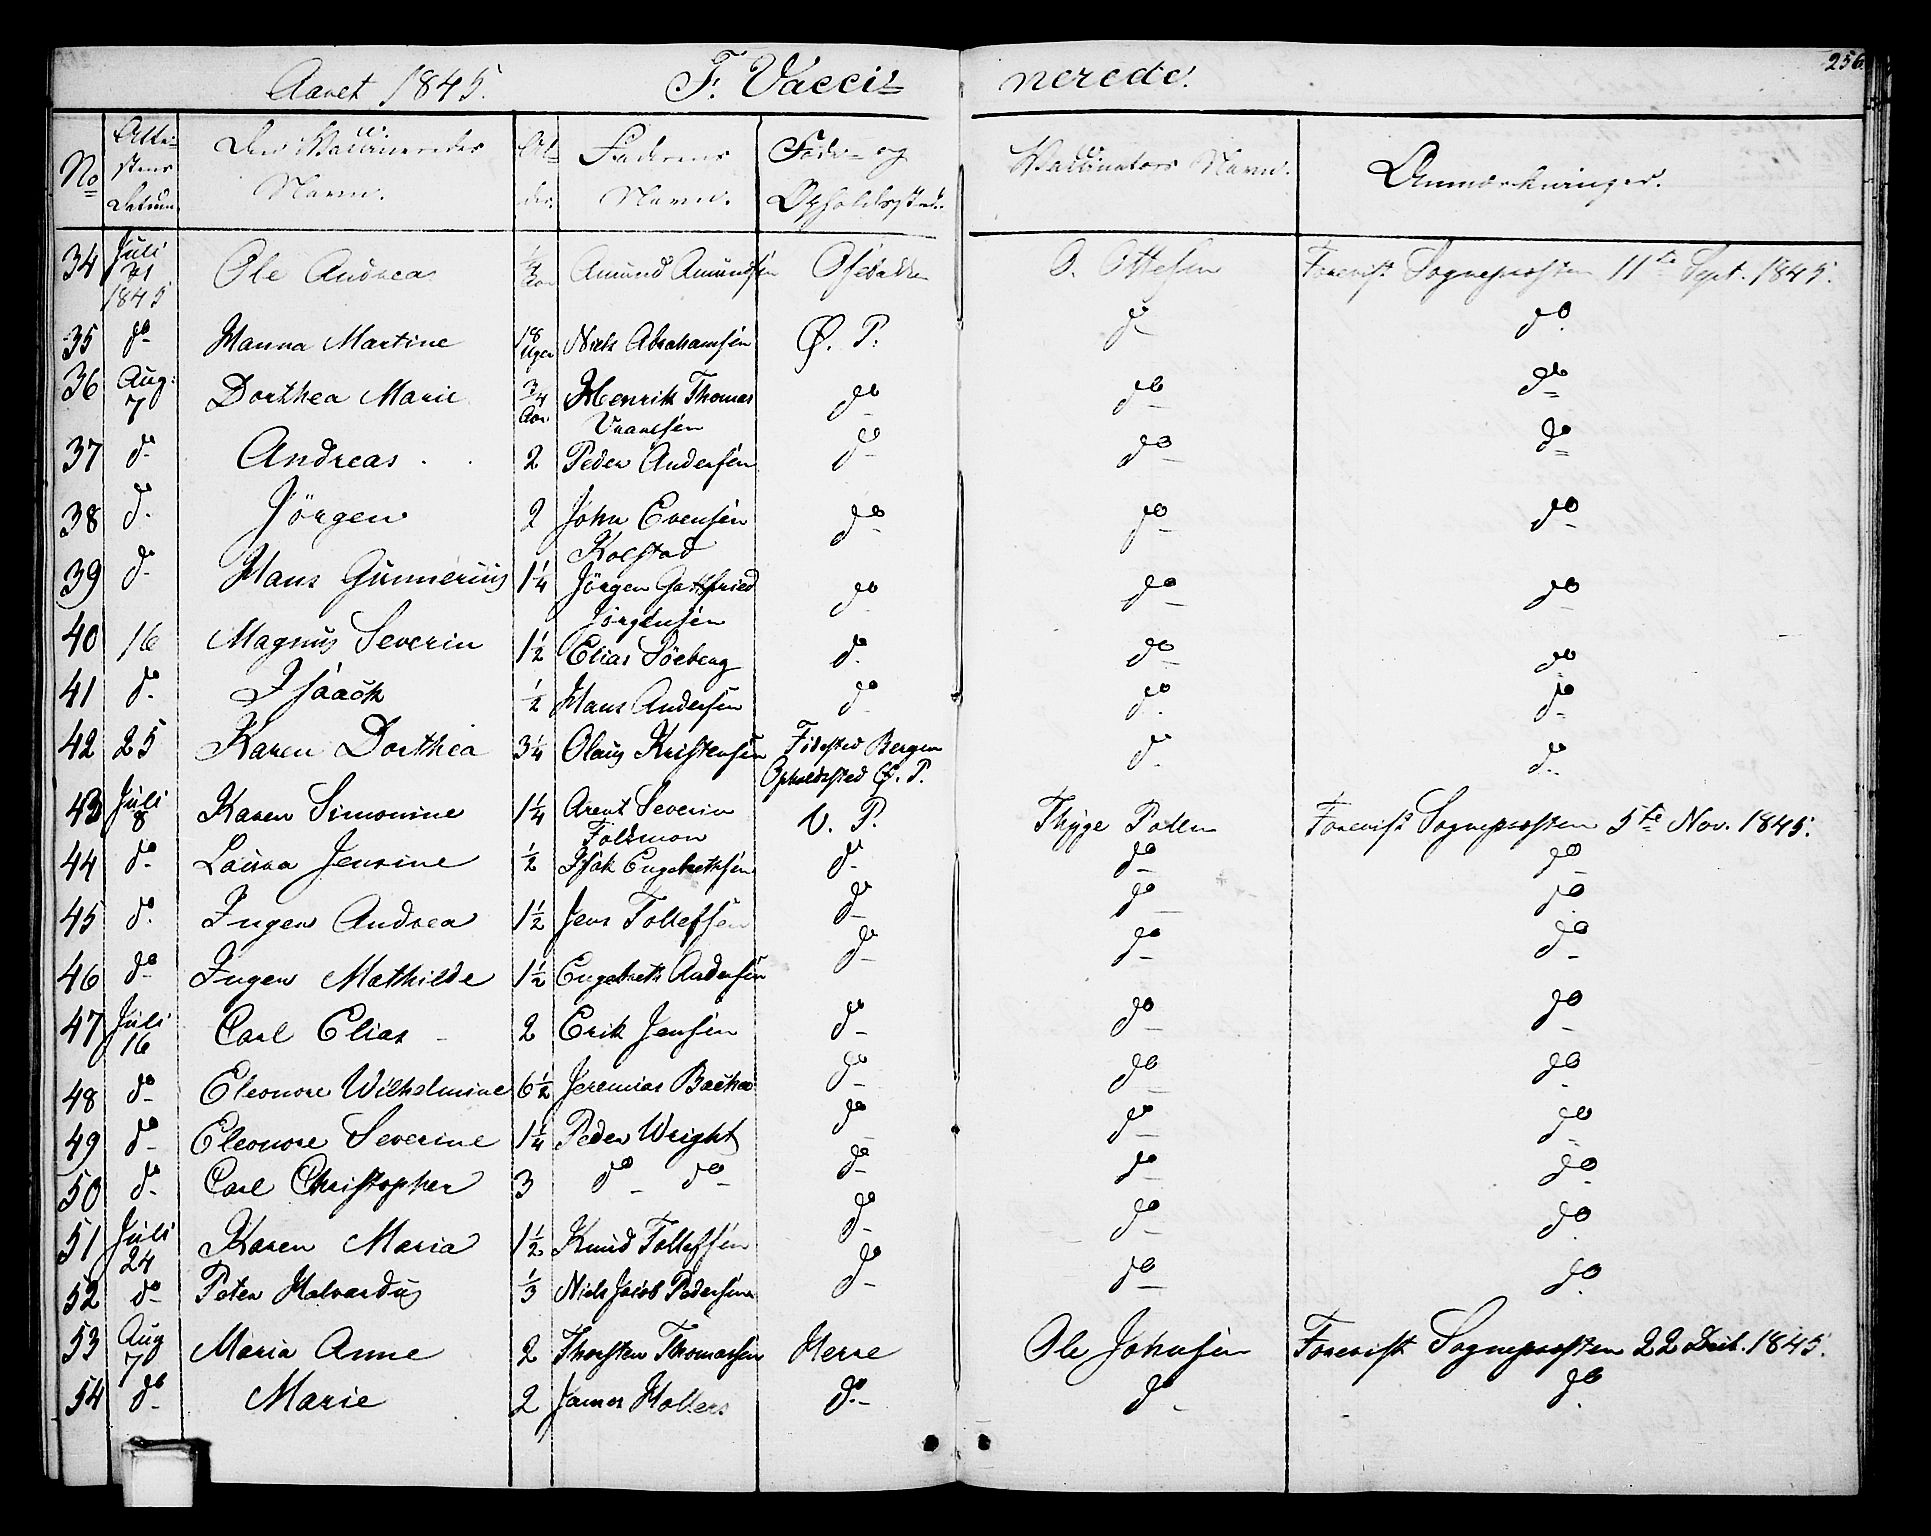 256.
Aaret 1845. F. Vacci= nerede.
No Atte=stens Datum. Den Vaccineredes Navn. Al=der. Faderens Navn. Føde- og Opholdssted. Vaccinators Navn. Anmærkninger.
34 Juli 31 1845 Ole Andreas ¼ Aar Amund Amundsen Osebakken O. Ottesen Forevist Sogneprosten 11te Sept. 1845.
35 do Hanna Martine 18 Uger Niels Abrahamsen Ø. P. do do
36 Aug: 7 Dorthea Marie ¾ Aar Henrik Thomas do do do
37 do Andreas 2 Peder Andersen do do do
38 do Jörgen 2 John Evensen Kolstad do do do
39 do Hans Gunnerius 1¼ Jörgen Gottfried Jörgensen do do do
40 16 Magnus Severin 1½ Elias Söeberg do do do
41 do Isaach ½ Hans Andersen do do do
42 25 Karen Dorthea 3¼ Olaus Kristensen Födested Bergen Opholdssted Ø. P. do do
43 Juli 8 Karen Simonine 1¼ Arent Severin V. P. Thyge Polle Forevist Sogneprosten 5te Nov. 1845.
44 do Laura Jensine ½ Isak Engebrethsen do do do
45 do Ingen Andrea 1½ Jens Tollefsen do do do
46 do Ingen Mathilde 1½ Engebreth Andersen do do do
47 Juli 16 Carl Elias 2 Erik Jensen do do do
48 do Eleonore Wilhelmine 6½ Jeremias Backe do do do
49 do Eleonore Severine 1¼ Peder Wright do do do
50 do Carl Christopher 3 do do do do do
51 Juli 24 Karen Maria 1½ Knud Tollefsen do do do
52 do Peter Halvardus ⅓ Niels Jacob Pedersen do do do
53 Aug 7 Maria Anne 2 Thorsten Thomassen Herre Ole Johnsen Forevist Sogneprosten 22 Decb. 1845.
54 do Marie 2 James Holters do do do